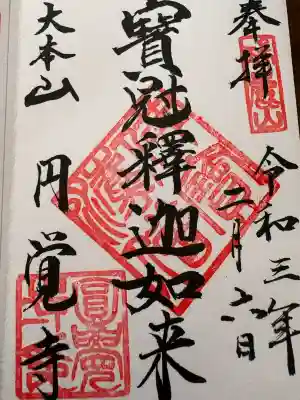 奉拝
令和三年二月六日
寶冠釋迦如来
大本山
円覚寺